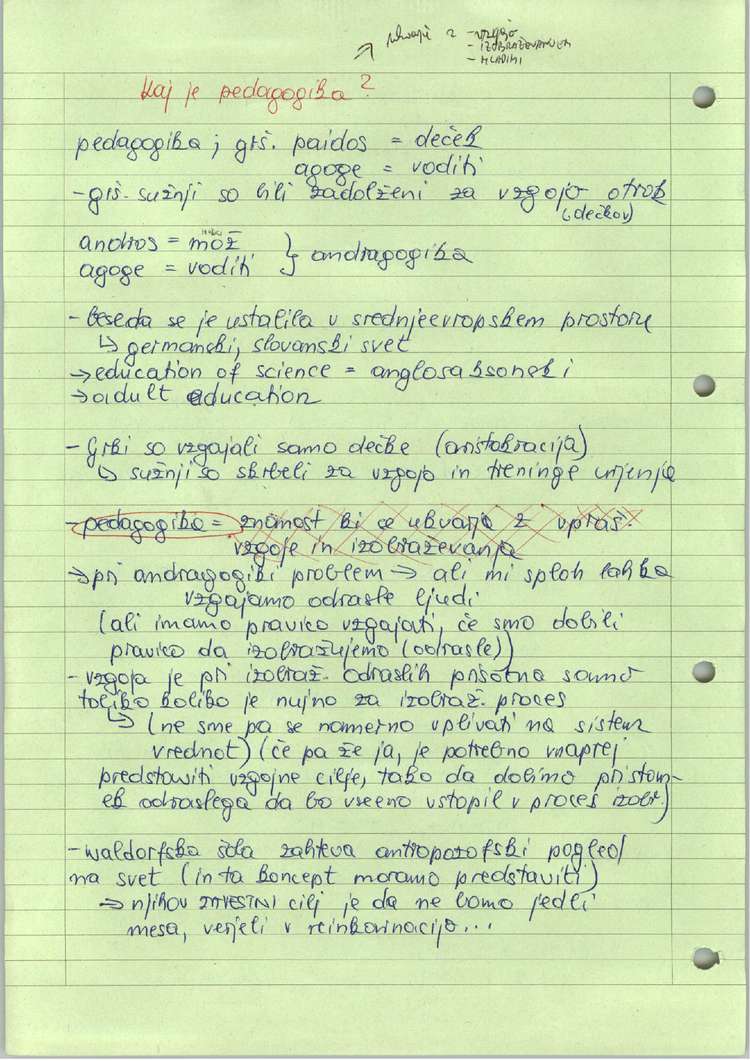 ukvarja z - vzgojo
- IZOBRAŽEVANJEM
- MLADIMI
Kaj je pedagogika?
pedagogika; grš. paidos = deček
agoge = voditi
- grš. sužnji so bili zadolženi za vzgojo otrok
(dečkov)
andros = mož
agoge = voditi } andragogika
- beseda se je ustalila v srednjeevropskem prostoru
↳ germanski, slovanski svet
→ education of science = anglosaksonski
→ adult education
- Grki so vzgajali samo dečke (aristokracija)
↳ sužnji so skrbeli za vzgojo in treninge urjenja
- pedagogika = znanost ki se ukvarja z vpraš.
vzgoje in izobraževanja
→ pri andragogiki problem → ali mi sploh lahko
vzgajamo odrasle ljudi
(ali imamo pravico vzgajati, če smo dobili
pravico da izobražujemo (odrasle))
- vzgoja je pri izobraž. odraslih prisotna samo
toliko kolikor je nujno za izobraž. proces
↳ (ne sme pa se namerno vplivati na sistem
vrednot) (če pa že ja, je potrebno vnaprej
predstaviti vzgojne cilje, tako da dobimo pristan-
ek odraslega da bo vseeno vstopil v proces izobr.)
- waldorfska šola zahteva antropozofski pogled
na svet (in ta koncept moramo predstaviti)
⇒ njihov ZAVESTNI cilj je da ne bomo jedli
mesa, verjeli v reinkarnacijo...